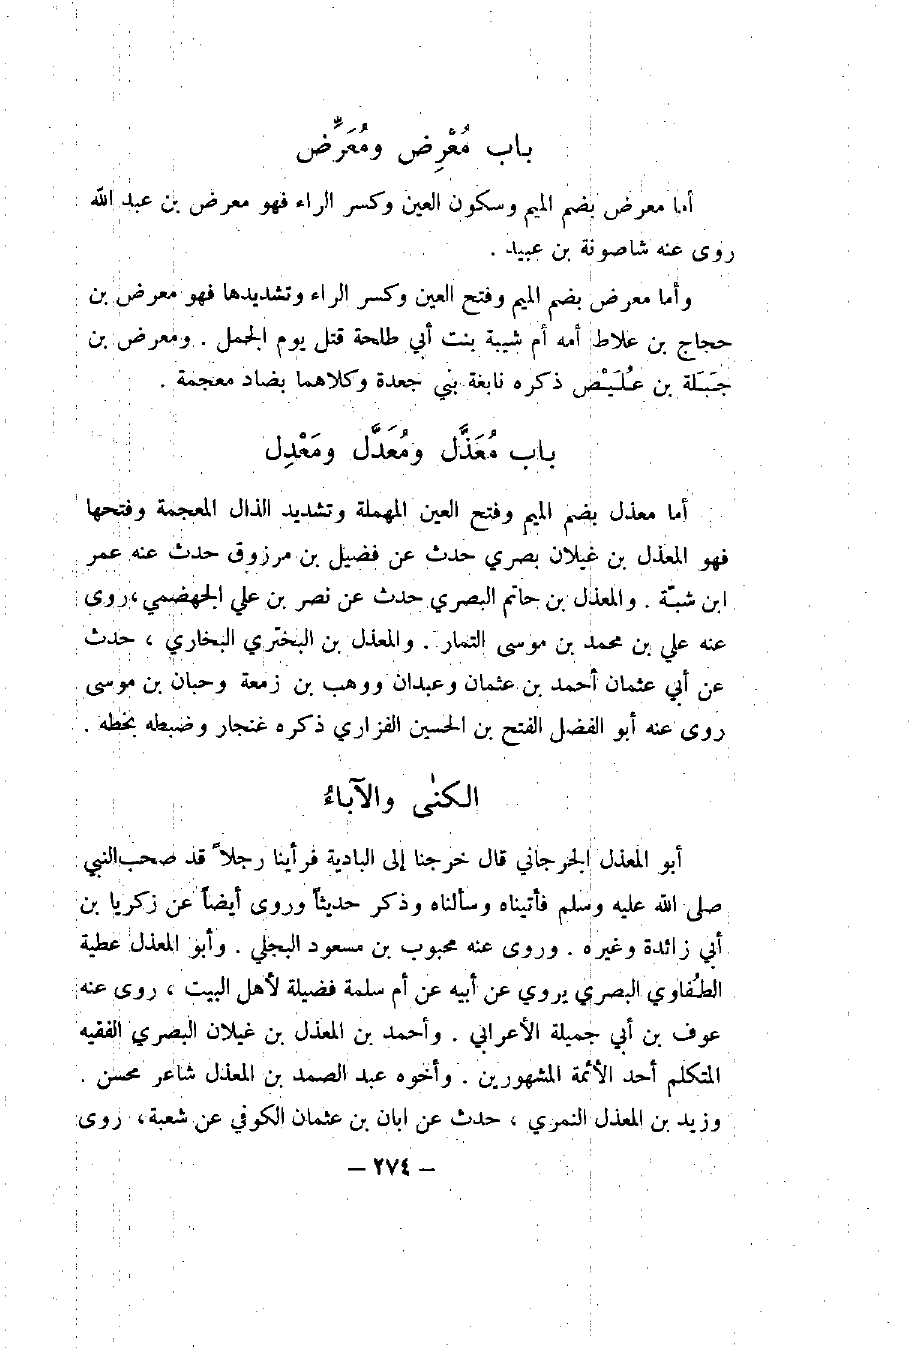 باب مُعْرِض ومُعَرِّض
أما معرض بضم الميم وسكون العين وكسر الراء فهو معرض بن عبد الله
روى عنه شاصونة بن عبيد .
وأما معرض بضم الميم وفتح العين وكسر الراء وتشديدها فهو معرض بن
حجاج بن علاط أمه أم شيبة بنت أبي طلحة قتل يوم الجمل . ومعرض بن
جَبَلة بن عُلَيْص ذكره نابغة بني جعدة وكلاهما بضاد معجمة .
باب مُعَذَّل ومُعَدَّل ومَعْدِل
أما معذل بضم الميم وفتح العين المهملة وتشديد الذال المعجمة وفتحها
فهو المعذل بن غيلان بصري حدث عن فضيل بن مرزوق حدث عنه عمر
ابن شبّة . والمعذل بن حاتم البصري حدث عن نصر بن علي الجهضمي ، روى
عنه علي بن محمد بن موسى التمار . والمعذل بن البختري البخاري ، حدث
عن أبي عثمان أحمد بن عثمان وعبدان ووهب بن زمعة وحبان بن موسى
روى عنه أبو الفضل الفتح بن الحسين الفزاري ذكره غنجار وضبطه بخطه .
الكنى والآباءُ
أبو المعذل الجرجاني قال خرجنا إلى البادية فرأينا رجلاً قد صحب النبي
صلى الله عليه وسلم فأتيناه وسألناه وذكر حديثاً وروى أيضاً عن زكريا بن
أبي زائدة وغيره . وروى عنه محبوب بن مسعود البجلي . وأبو المعذل عطية
الطُفاوي البصري يروي عن أبيه عن أم سلمة فضيلة لأهل البيت ، روى عنه
عوف بن أبي جميلة الأعرابي . وأحمد بن المعذل بن غيلان البصري الفقيه
المتكلم أحد الأئمة المشهورين . وأخوه عبد الصمد بن المعذل شاعر محسن .
وزيد بن المعذل النمري ، حدث عن ابان بن عثمان الكوفي عن شعبة ، روى
– ٢٧٤ –